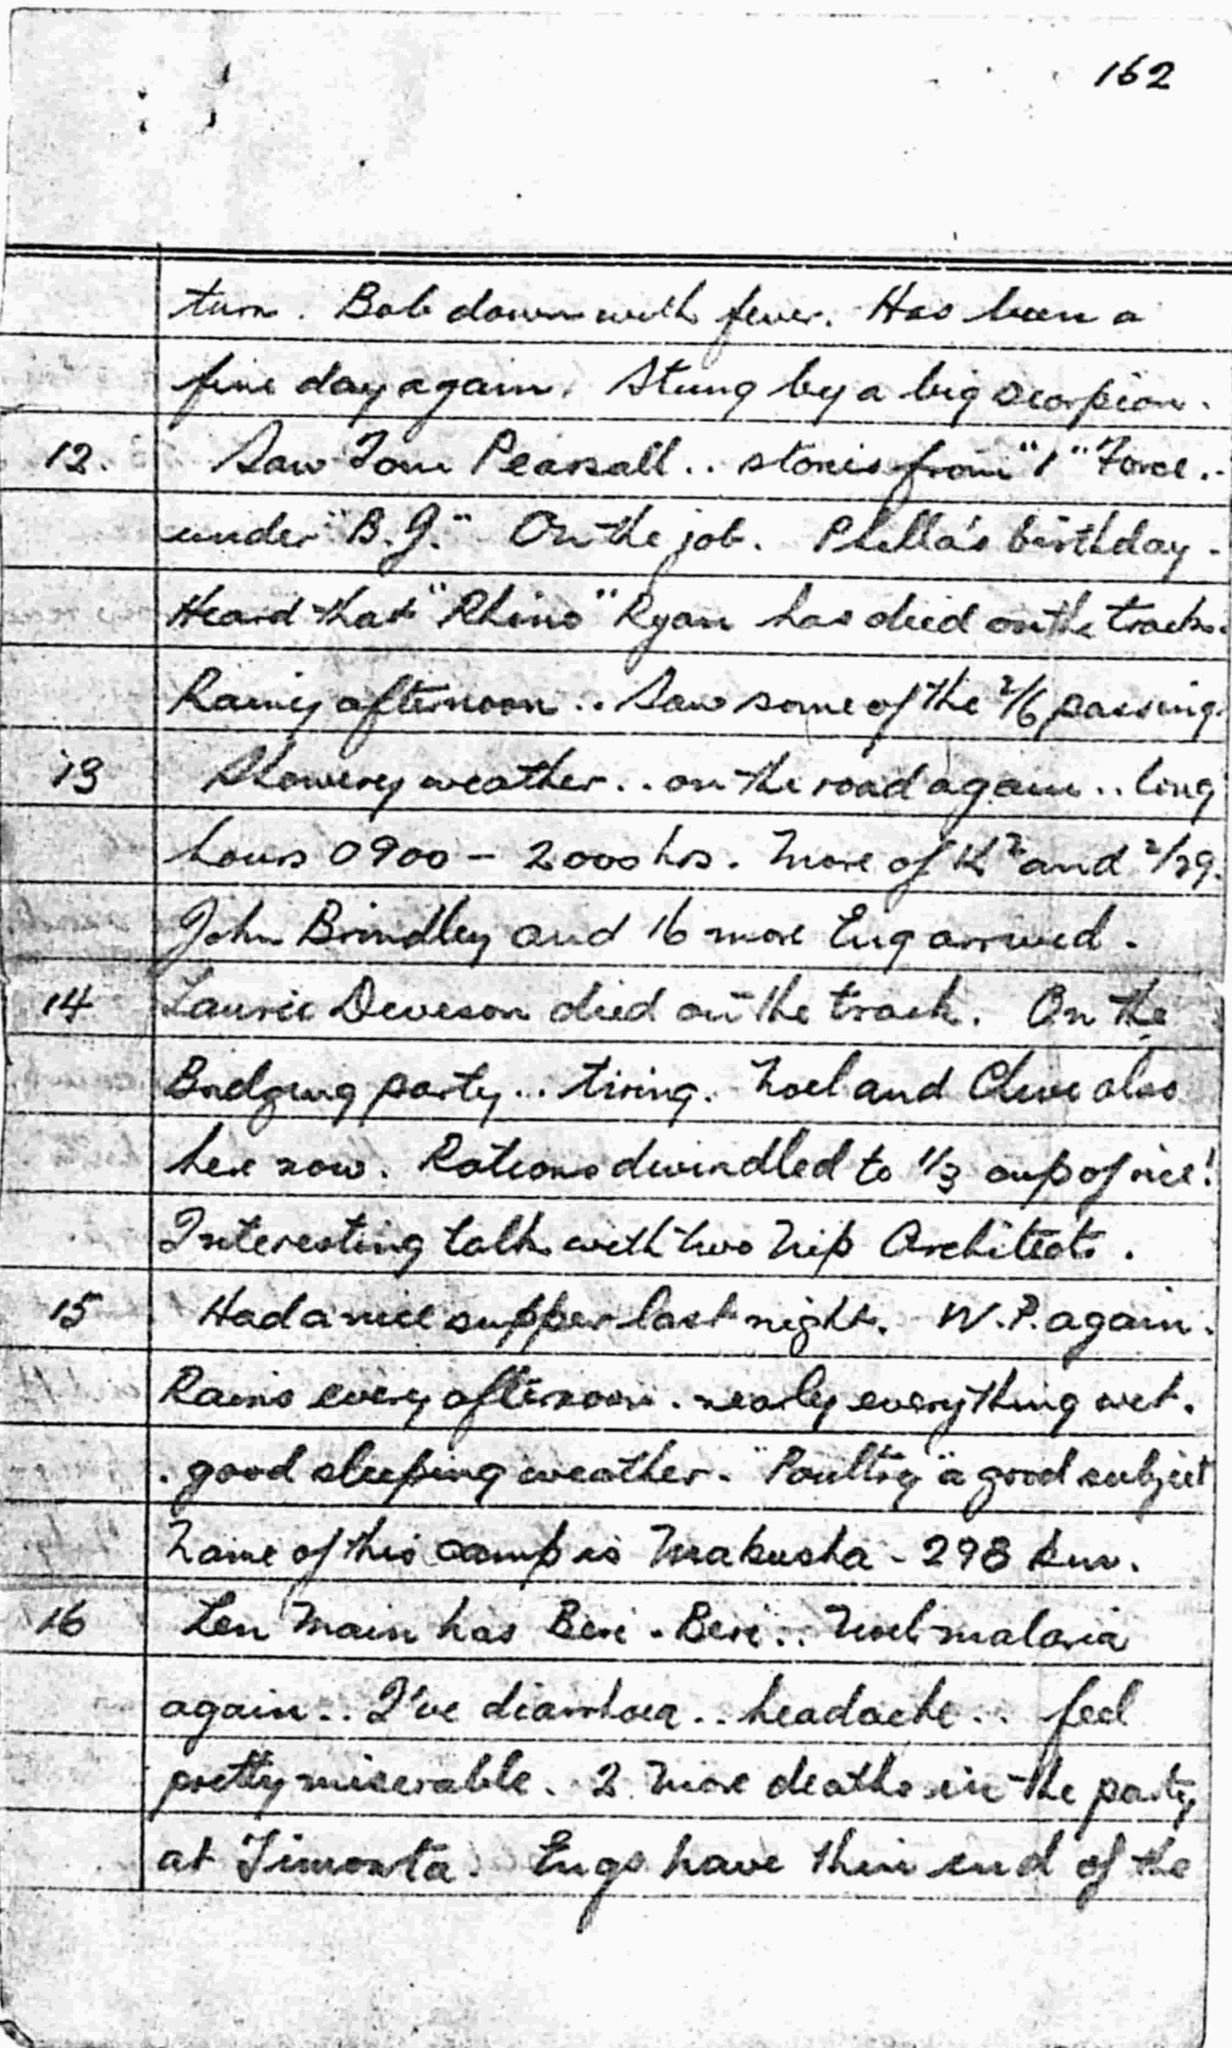 162
turn. Bob down with fever. Has been a
fine day again. Stung by a big scorpion.
12. Saw Tom Pearsall .. stories from "1" Force ..
under "B.J." On the job. Phella's birthday.
Heard that "Rhino" Ryan has died on the track.
Rainy afternoon .. Saw some of the 2/6 passing.
13 Showery weather .. on the road again .. long
hours 0900 - 2000 hrs. More of K2 and 2/29.
John Brindley and 16 more Eng arrived.
14 Laurie Deveson died on the track. On the
Bridging party .. tiring. Noel and Clive also
here now. Rations dwindled to 1/3 cup of rice!
Interesting talk with two Nip Architects.
15 Had a nice supper last night. W.P. again.
Rains every afternoon. nearly everything wet.
. good sleeping weather. "Poultry" a good subject
Name of this camp is Makusha - 298 km.
16 Len Main has Beri-Beri .. Noel malaria
again .. I've diarrhoea .. headache .. feel
pretty miserable. 2 more deaths in the party
at Timonta. Engs have thin end of the